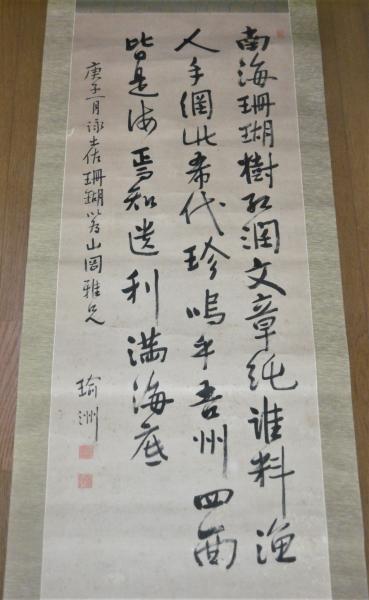 南海珊瑚樹紅潤文章純誰料漁
人手網此希代珍嗚乎吾州四面
皆是海焉知遺利満海底
庚子一月詠土佐珊瑚為山岡雅兄
瑜洲